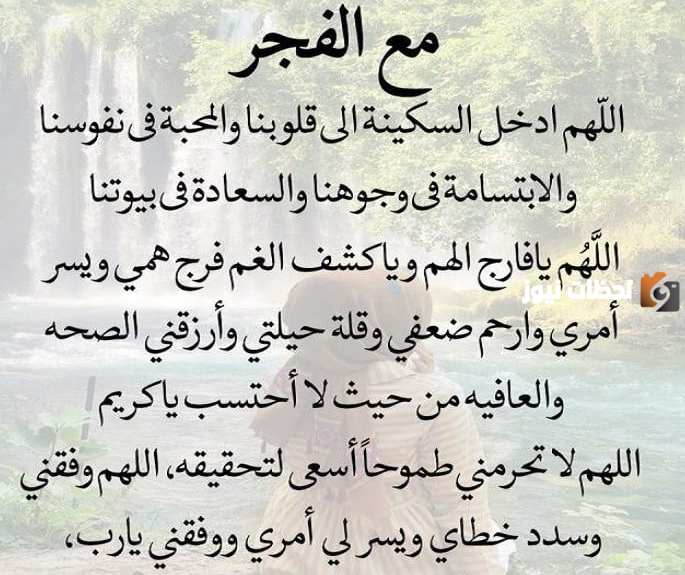 مع الفجر
اللّهم ادخل السكينة الى قلوبنا والمحبة فى نفوسنا
والابتسامة فى وجوهنا والسعادة فى بيوتنا
اللَّهُم يافارج الهم وياكشف الغم فرج همي ويسر
لحظات نيوز
أمري وارحم ضعفي وقلة حيلتي وأرزقني الصحه
والعافيه من حيث لا أحتسب ياكريم
اللهم لا تحرمني طموحاً أسعى لتحقيقه، اللهم وفقني
وسدد خطاي ويسر لي أمري ووفقني يارب،